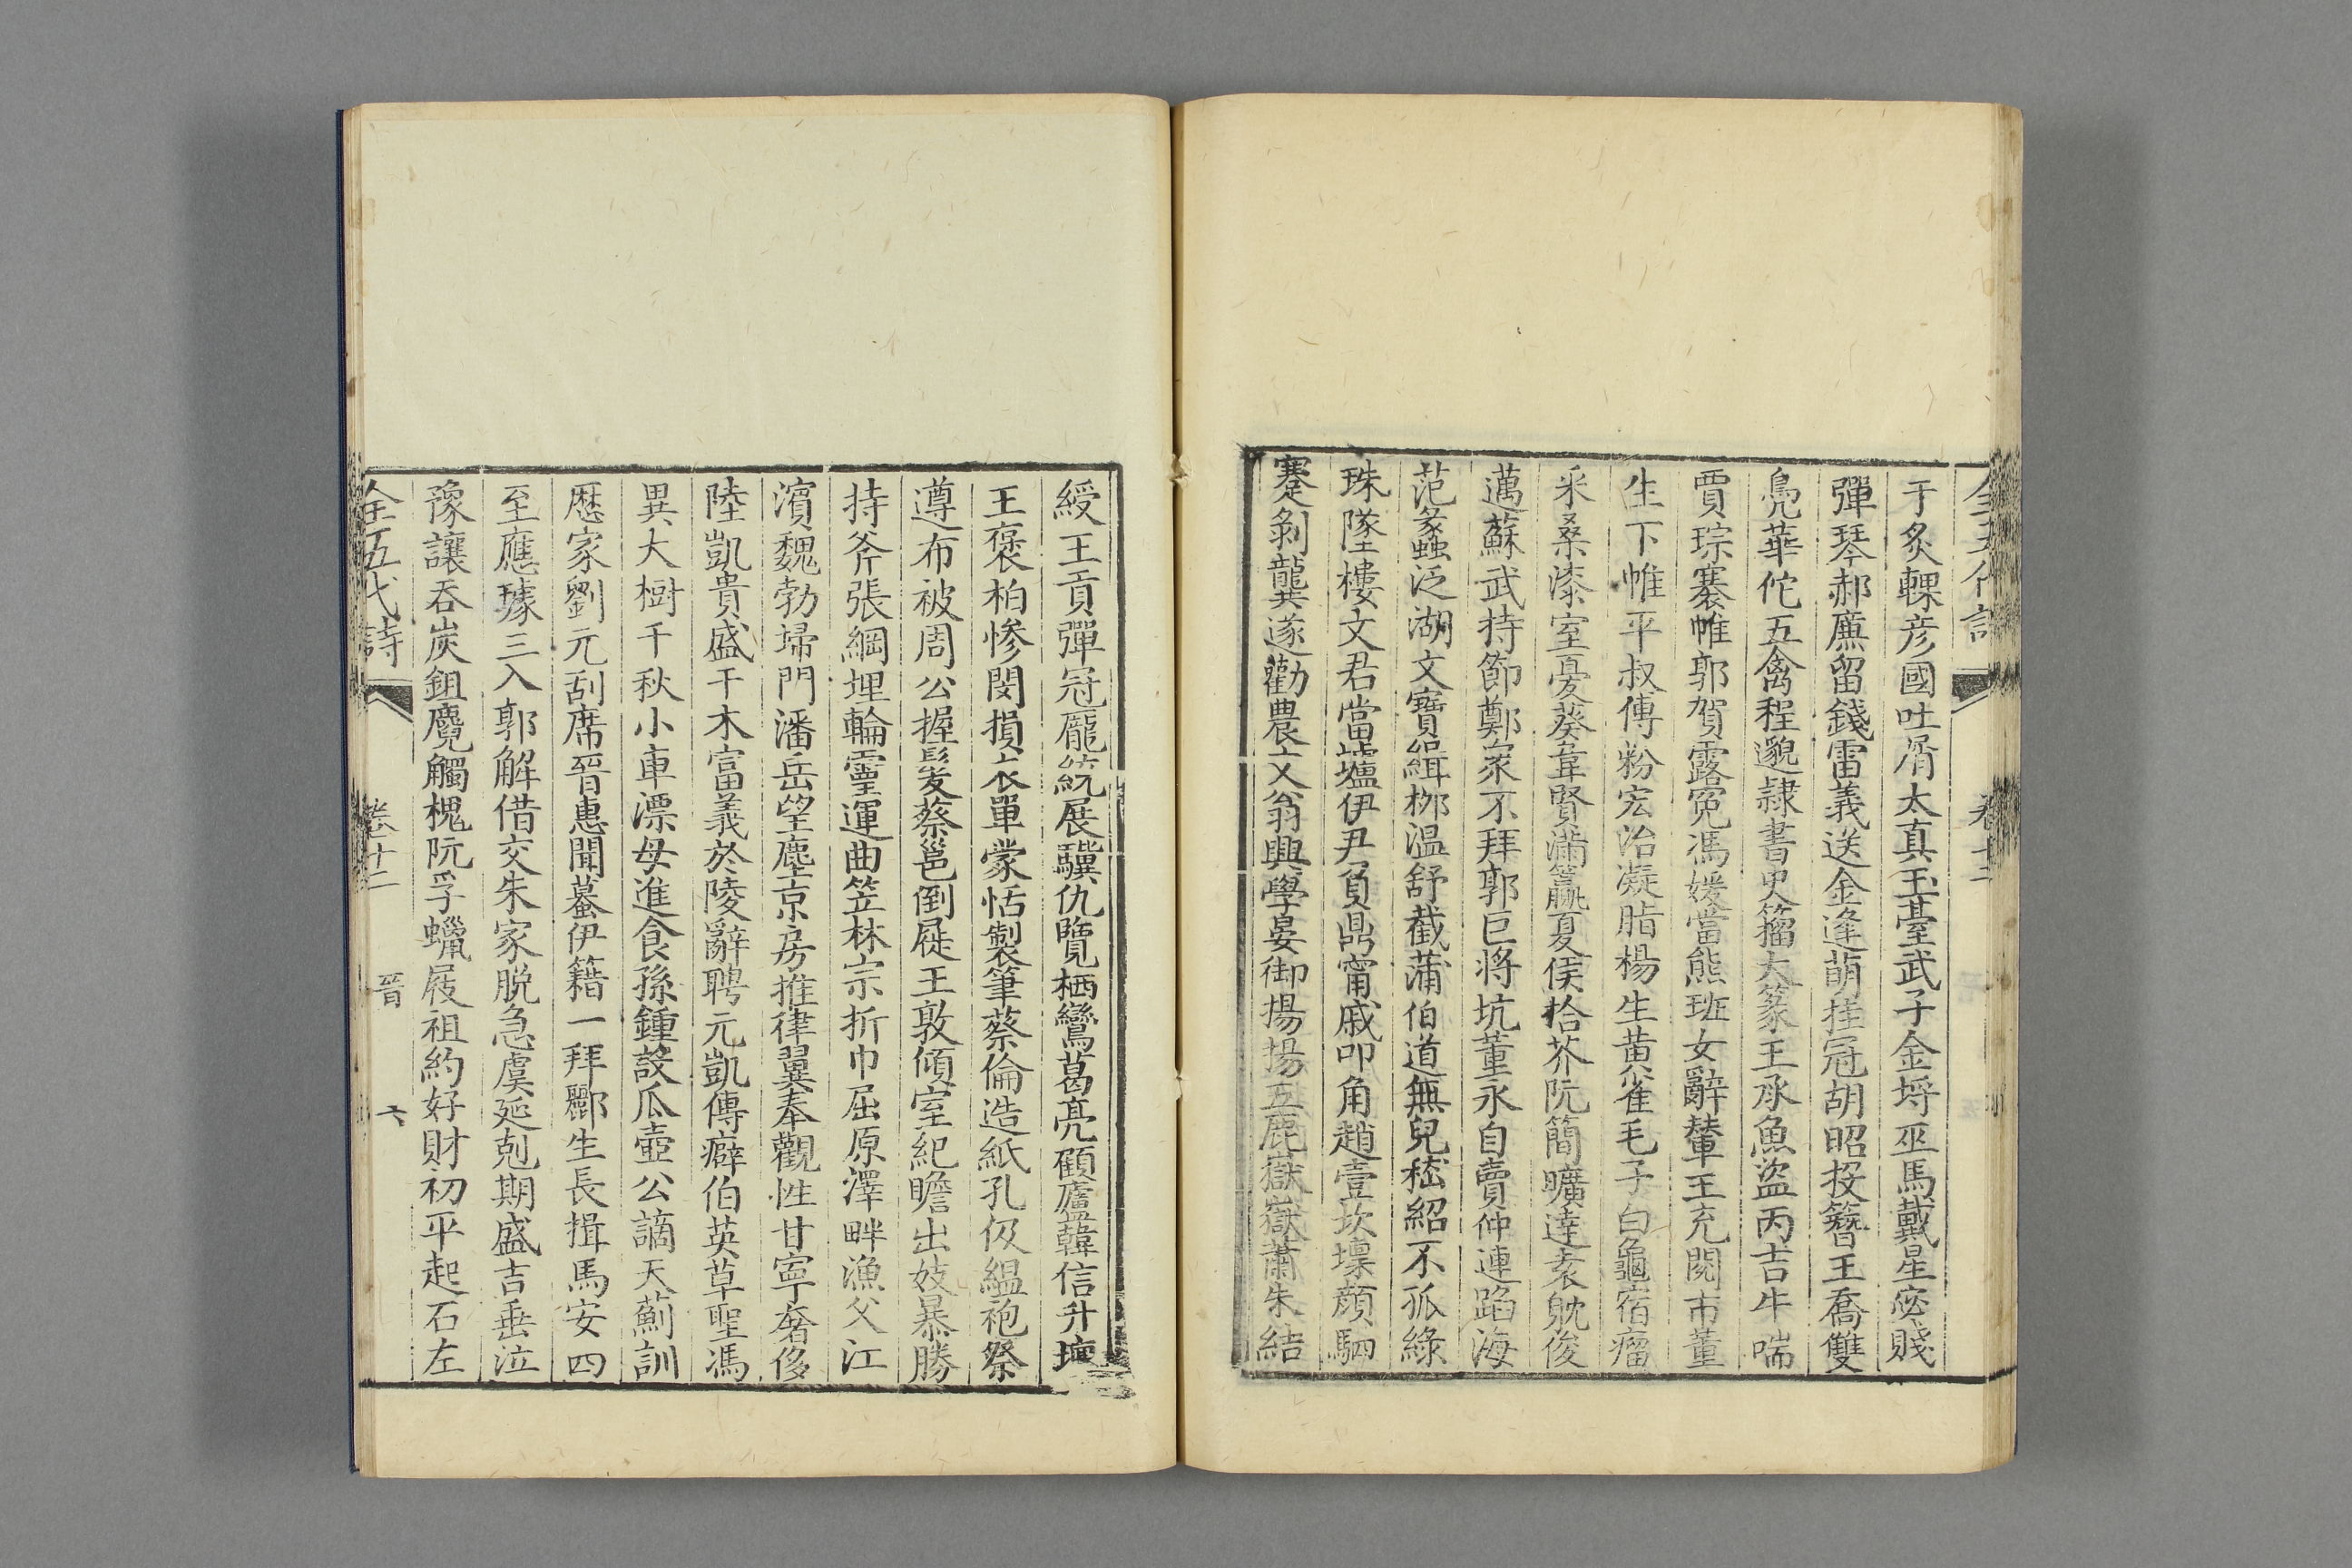 全五代詩 卷十二
于炙輠彦國吐屑太真玉臺武子金埒巫馬戴星宓賤
彈琴郝廉留錢雷義送金逢萌挂冠胡昭投簪王喬雙
鳧華佗五禽程邈隷書史籀大篆王承魚盜丙吉牛喘
賈琮褰帷郭賀露冕馮媛當熊班女辭輦王充閱市董
生下帷平叔傅粉宏治凝脂楊生黃雀毛子白龜宿瘤
采桑漆室憂葵韋賢滿籯夏侯拾芥阮簡曠達袁躭俊
邁蘇武持節鄭眾不拜郭巨將坑董永自賣仲連蹈海
范蠡泛湖文寶緝栁温舒截蒲伯道無兒嵇紹不孤綠
珠墜樓文君當壚伊尹負鼎甯戚叩角趙壹坎壈顔駟
蹇剝龔遂勸農文翁興學晏御揚揚五鹿嶽嶽蕭朱結
綬王貢彈冠龐統展驥仇覽栖鸞葛亮顧廬韓信升壇
王裒柏慘閔損衣單蒙恬製筆蔡倫造紙孔伋緼袍祭
遵布被周公握髮蔡邕倒屣王敦傾室紀瞻出妓暴勝
持斧張綱埋輪靈運曲笠林宗折巾屈原澤畔漁父江
濱魏勃埽門潘岳望塵京房推律翼奉觀性甘寧奢侈
陸凱貴盛干木富義於陵辭聘元凱傳癖伯英草聖馮
異大樹千秋小車漂母進食孫鍾設瓜壺公謫天薊訓
歷家劉元刮席晉惠聞蟇伊籍一拜酈生長揖馬安四
至應璩三入郭解借交朱家脱急虞延剋期盛吉垂泣
豫讓吞炭鉏麑觸槐阮孚蠟屐祖約好財初平起石左
全五代詩 卷十二 晉 六